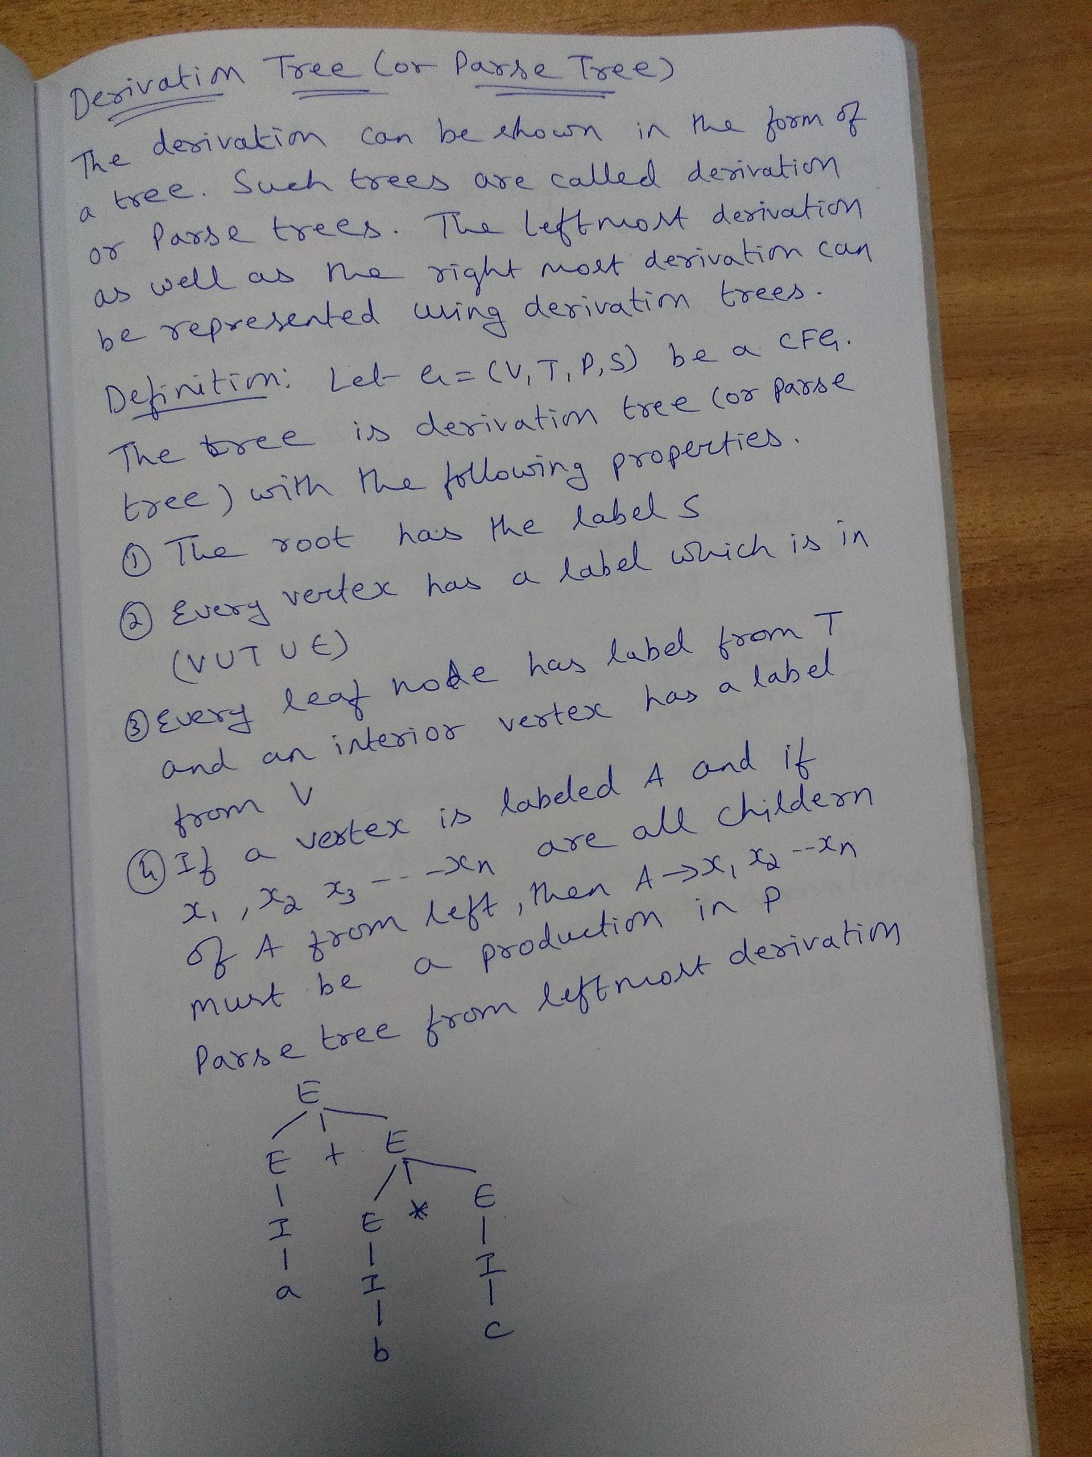 Derivation Tree (or Parse Tree)
The derivation can be shown in the form of
a tree. Such trees are called derivation
or Parse trees. The leftmost derivation
as well as the right most derivation can
be represented using derivation trees.
Definition: Let G = (V, T, P, S) be a CFG.
The tree is derivation tree (or parse
tree) with the following properties.
① The root has the label S
② Every vertex has a label which is in
(V U T U ϵ)
③ Every leaf node has label from T
and an interior vertex has a label
from V
④ If a vertex is labeled A and if
x₁, x₂ x₃ ---- xₙ are all childern
of A from left, then A → x₁ x₂ -- xₙ
must be a production in P
Parse tree from leftmost derivation
E
E + E
E * E
I I I
a b c